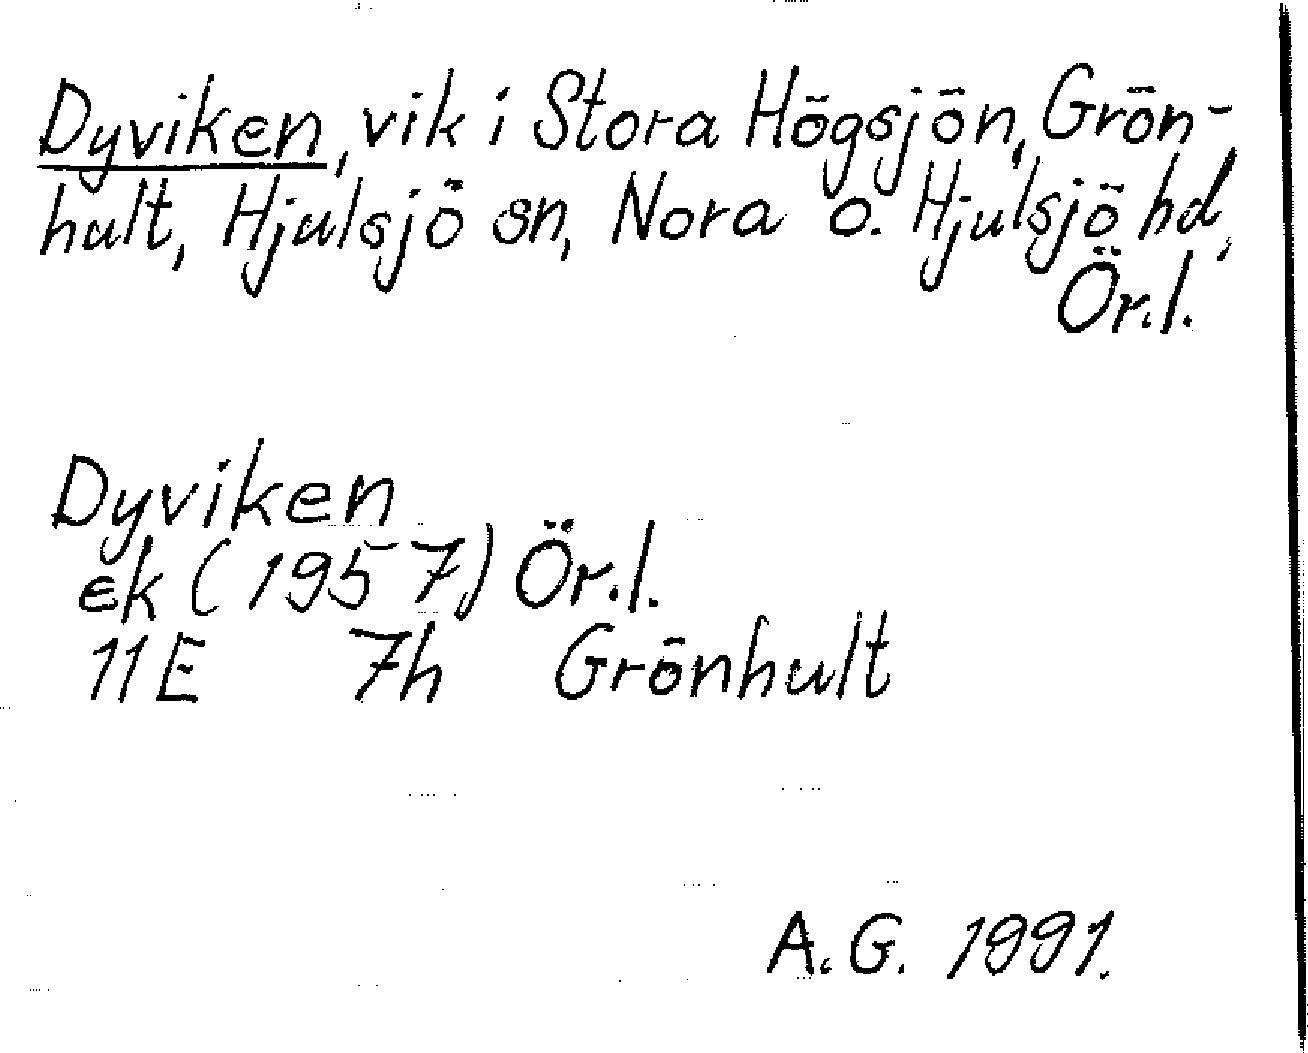 Dyviken, vik i Stora Högsjön, Grön-
hult, Hjulsjö sn, Nora o. Hjulsjö hd,
Ör.l.
Dyviken
ek (1957) Ör.l.
11E 7h Grönhult
A.G. 1991.